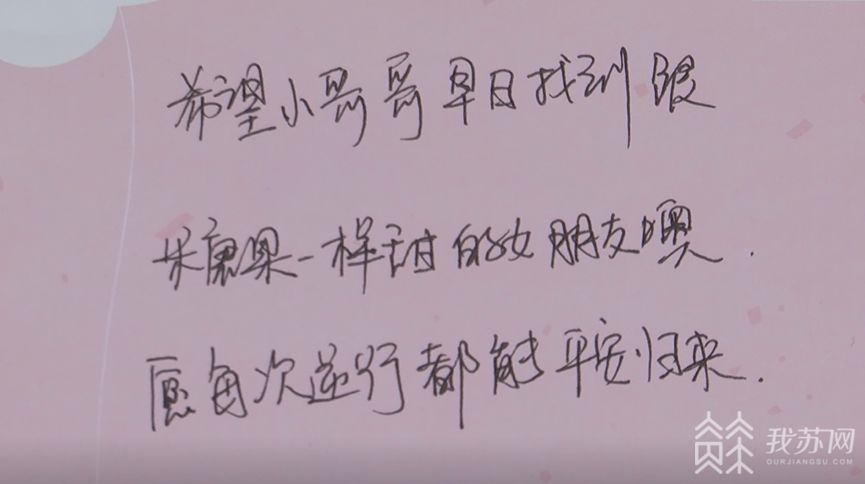 希望小哥哥早日找到跟
乐康果一样甜的女朋友噢.
愿每次逆行都能平安归来.
我苏网
OURJIANGSU.COM